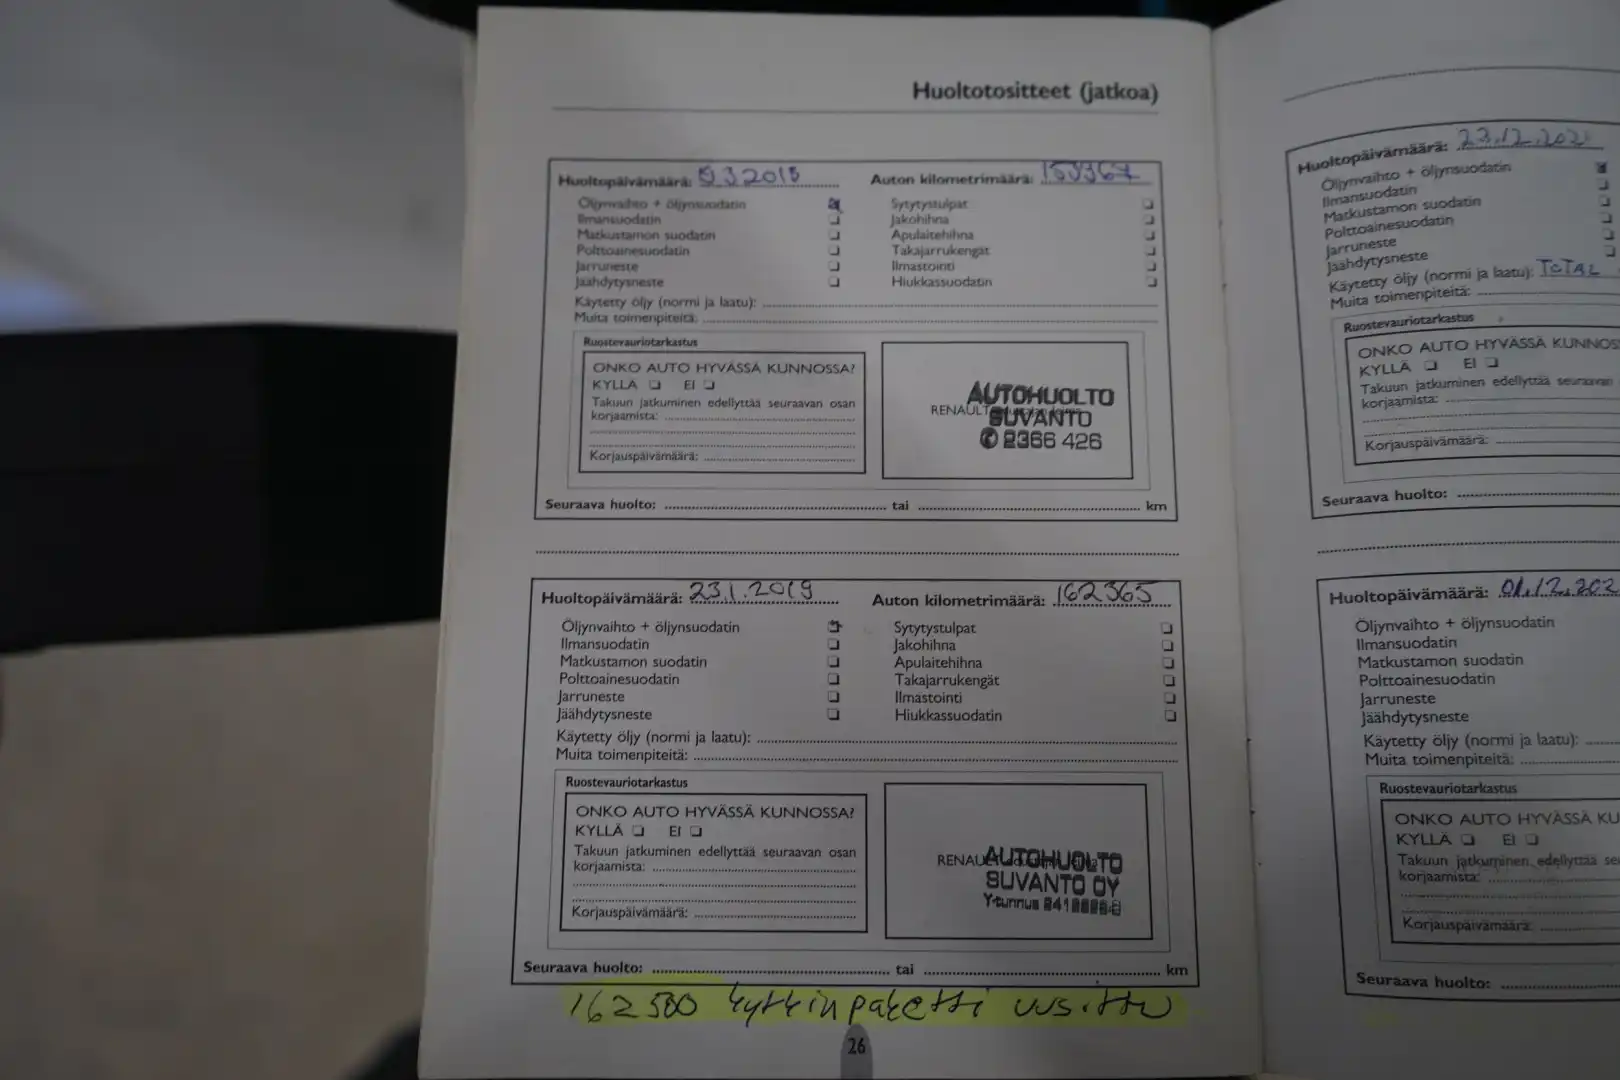 Huoltotositteet (jatkoa)
Huoltopäivämäärä: 9.3.2018 Auton kilometrimäärä: 153367
Öljynvaihto + öljynsuodatin Sytytystulpat
Ilmansuodatin Jakohihna
Matkustamon suodatin Apulaitehihna
Polttoainesuodatin Takajarrukengät
Jarruneste Ilmastointi
Jäähdytysneste Hiukkassuodatin
Käytetty öljy (normi ja laatu):
Muita toimenpiteitä:
Ruostevauriotarkastus
ONKO AUTO HYVÄSSÄ KUNNOSSA?
KYLLÄ EI
Takuun jatkuminen edellyttää seuraavan osan
korjaamista:
Korjauspäivämäärä:
AUTOHUOLTO
RENAULT
SUVANTO
2366 426
Seuraava huolto: tai km
Huoltopäivämäärä: 23.1.2019 Auton kilometrimäärä: 162365
Öljynvaihto + öljynsuodatin Sytytystulpat
Ilmansuodatin Jakohihna
Matkustamon suodatin Apulaitehihna
Polttoainesuodatin Takajarrukengät
Jarruneste Ilmastointi
Jäähdytysneste Hiukkassuodatin
Käytetty öljy (normi ja laatu):
Muita toimenpiteitä:
Ruostevauriotarkastus
ONKO AUTO HYVÄSSÄ KUNNOSSA?
KYLLÄ EI
Takuun jatkuminen edellyttää seuraavan osan
korjaamista:
Korjauspäivämäärä:
AUTOHUOLTO
SUVANTO OY
Y-tunnus
Seuraava huolto: tai km
162500 kytkinpaketti uusittu
26
Huoltopäivämäärä: 23.12.202
Öljynvaihto + öljynsuodatin
Ilmansuodatin
Matkustamon suodatin
Polttoainesuodatin
Jarruneste
Jäähdytysneste
Käytetty öljy (normi ja laatu): TOTAL
Muita toimenpiteitä:
Ruostevauriotarkastus
ONKO AUTO HYVÄSSÄ KUNNOS
KYLLÄ EI
Takuun jatkuminen edellyttää seuraavan
korjaamista:
Korjauspäivämäärä:
Seuraava huolto:
Huoltopäivämäärä: 01.12.202
Öljynvaihto + öljynsuodatin
Ilmansuodatin
Matkustamon suodatin
Polttoainesuodatin
Jarruneste
Jäähdytysneste
Käytetty öljy (normi ja laatu):
Muita toimenpiteitä:
Ruostevauriotarkastus
ONKO AUTO HYVÄSSÄ KU
KYLLÄ EI
Takuun jatkuminen edellyttää se
korjaamista:
Korjauspäivämäärä:
Seuraava huolto: